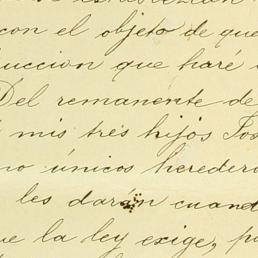 con el objeto de que
uccion que haré
Del remanente de
mis tres hijos Jos
no únicos heredero
les darán cuand
ue la ley exige, pa